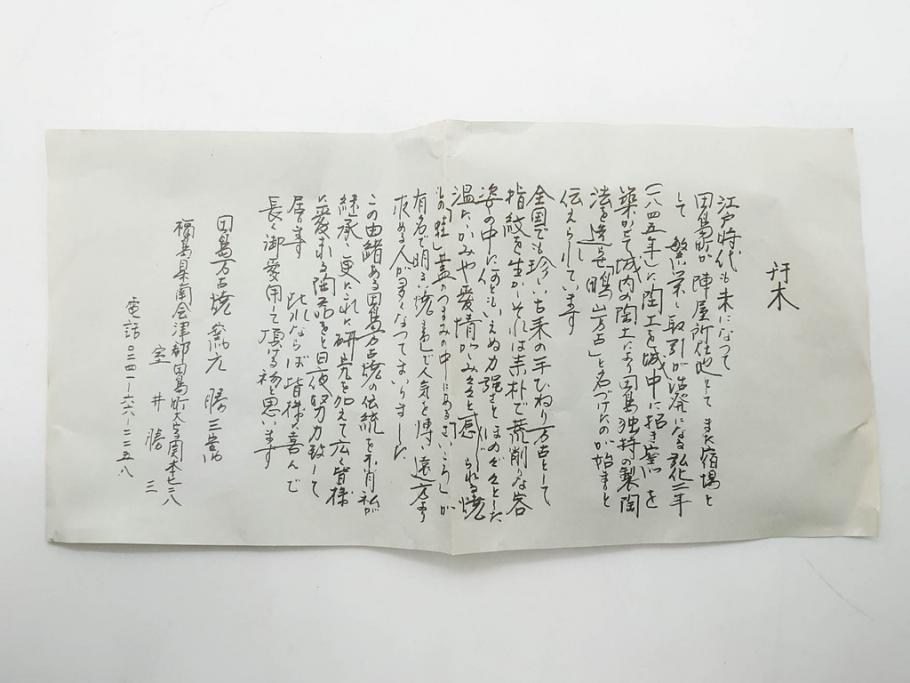 栞
江戸時代も末になつて
田島町が陣屋所在地としてまた宿場と
して繁栄し取引が活発になる弘化二年
(一八四五年)に陶工を城中に招き窯を
築かせて城内の陶土により田島独特の製陶
法を造せ「鴫山万古」と名づけたのが始まりと
伝えられています
全国でも珍しい古来の手ひねり万古として
指紋を生かしそれは素朴で荒削りな容
姿の中に何ともいえぬ力強さとほのぼのとした
温たかみや愛情がしみじみと感じられる焼
もの「蛙」が蓋のつまみの中にある
有名で明るい焼き色で人気を博し遠方より
求める人が多くなつてまいりました
この由緒ある田島万古焼の伝統を不肖私が
継承し更にこれに研究を加えて広く皆様
に愛される陶器をと日夜努力致して
居ります 此れならば皆様に喜んで
長く御愛用して頂ける様思います
田島万古焼 窯元 勝三窯
福島県南会津郡田島町大字関本七三八
室井勝三
電話〇二四一ー六六ー二二五八